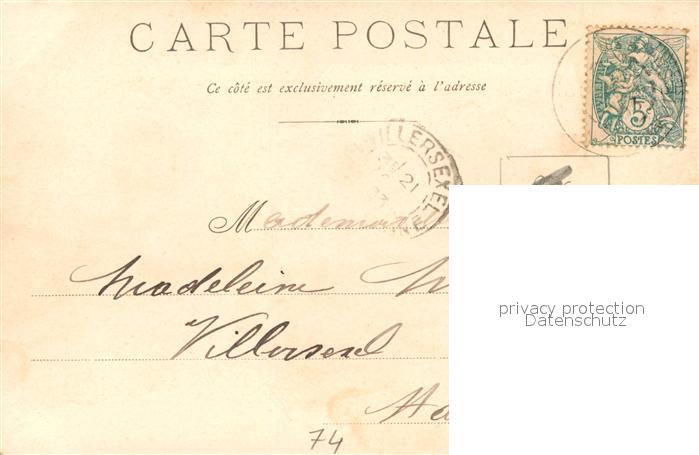 CARTE POSTALE
Ce côté est exclusivement réservé à l'adresse
5
POSTES
VILLERSEXEL
21
Mademoiselle
Madeleine M
privacy protection
Datenschutz
à Villersexel
Ha
74